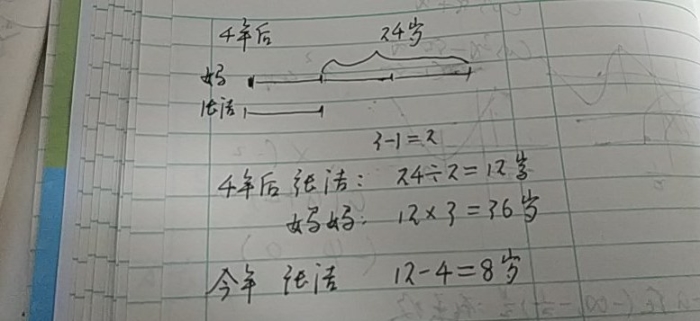 4年后 24岁
妈
张洁
3-1=2
4年后 张洁: 24÷2=12岁
妈妈: 12×3=36岁
今年 张洁 12-4=8岁